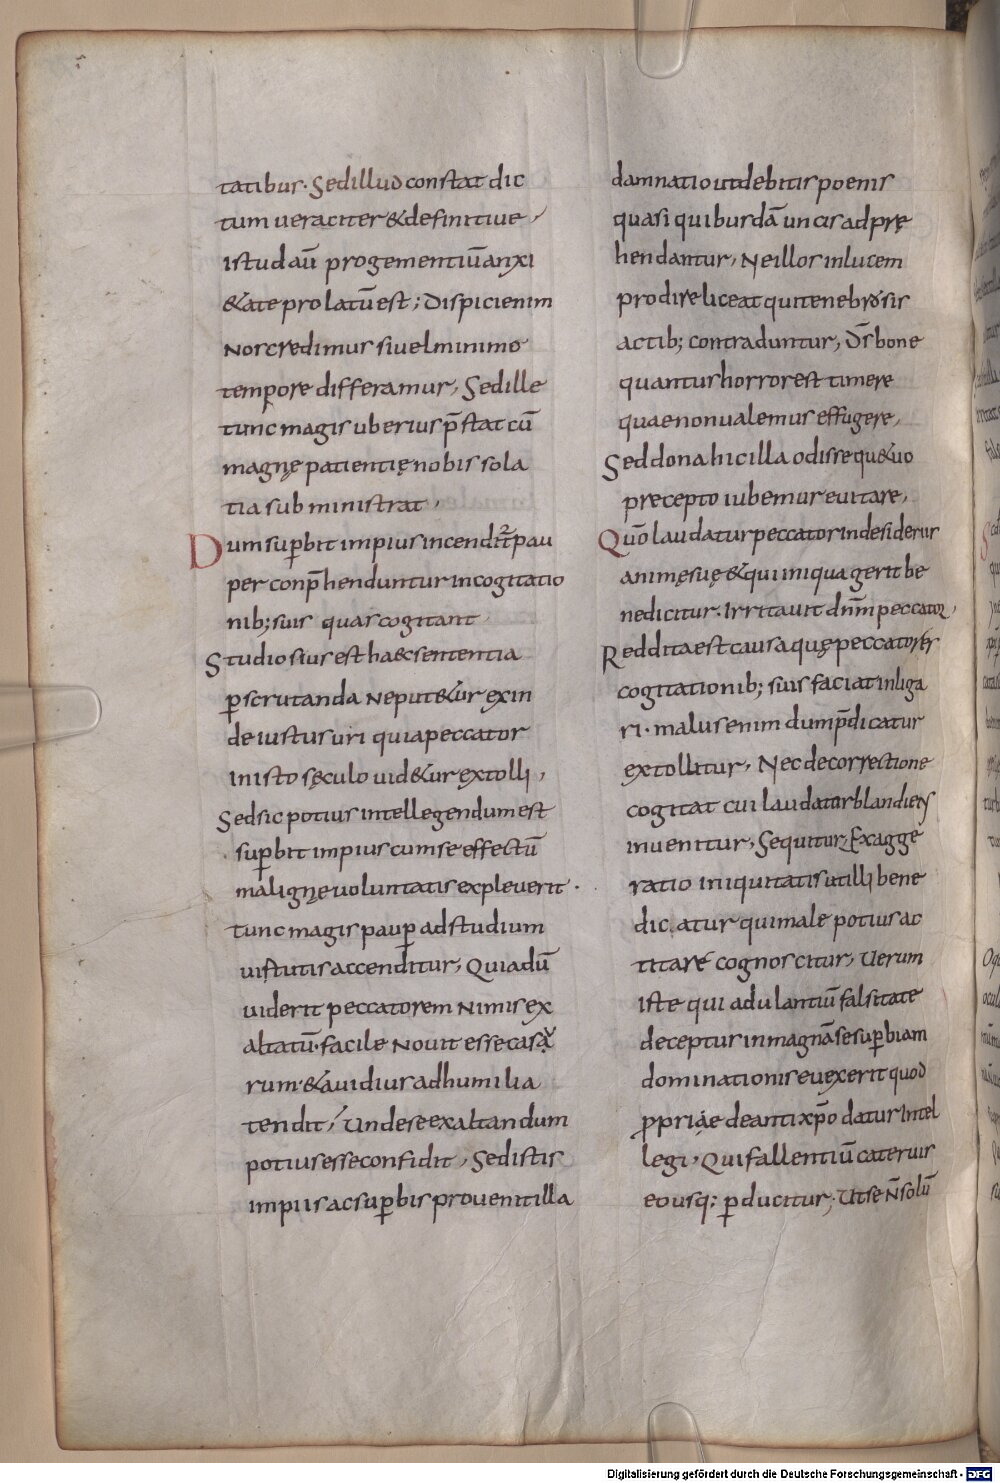 tatibus. Sed illud constat dic
tum veraciter & definitive
istud aū progementiū anxi
&ate prolatū est; Dispici enim
nos credimus si vel minimo
tempore differamur, Sed ille
tunc magis uberius p̄stat cū
magnę patientię nobis sola
tia subministrat,
Dum sup̱bit impius incenditur pau
per conp̄henduntur in cogitatio
nib; suis quas cogitant
Studiosius est haec sententia
p̱scrutanda ne put&ur exin
de iustus uri quia peccator
in isto sęculo uid&ur extolli,
Sed sic potius intellegendum est
sup̱bit impius cum se effectū
malignę voluntatis expleverit.
tunc magis paup̱ ad studium
virtutis accenditur, Quia dū
viderit peccatorem nimis ex
altatū. facile novit esse casu
rum. & avidius ad humilia
tendit, Unde se exaltandum
potius esse confidit, Sed istis
impiis ac sup̱bis provenit illa
damnatio ut debitis poenis
quasi quibusdā uncis adprę
hendantur, Ne illos in lucem
prodire liceat qui tenebrosis
actib; contraduntur, D̄s bone
quantus horror est timere
quae non valemus effugere,
Sed dona hic illa odisse que & uo
precepto iubemur evitare,
Quō laudatur peccator in desideriis
animę suę & qui iniqua gerit be
nedicitur. Irritavit dn̄m peccator,
Reddita est causa quę peccatores
cogitationib; suis faciat inliga
ri. malus enim dum p̄dicatur
extollitur, Nec de correctione
cogitat cui laudatur blandiens
invenitur, Sequitur, Exagge
ratio iniquitatis ut illi bene
dicatur qui male potius ac
titare cognoscitur, Verum
iste qui adulantiū falsitate
deceptus in magnā se sup̱biam
dominationis evexerit quod
ꝓpriae de antixp̄o datur intel
legi, Qui fallentiū catervis
eo usq; p̱ducitur, Ut se n̄ solū
Digitalisierung gefördert durch die Deutsche Forschungsgemeinschaft - DFG